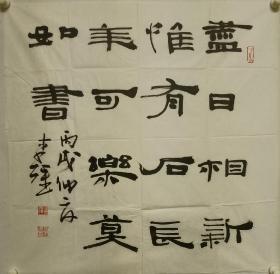 盡日相新
惟有石長
年可樂莫
如書
丙戌仲
李